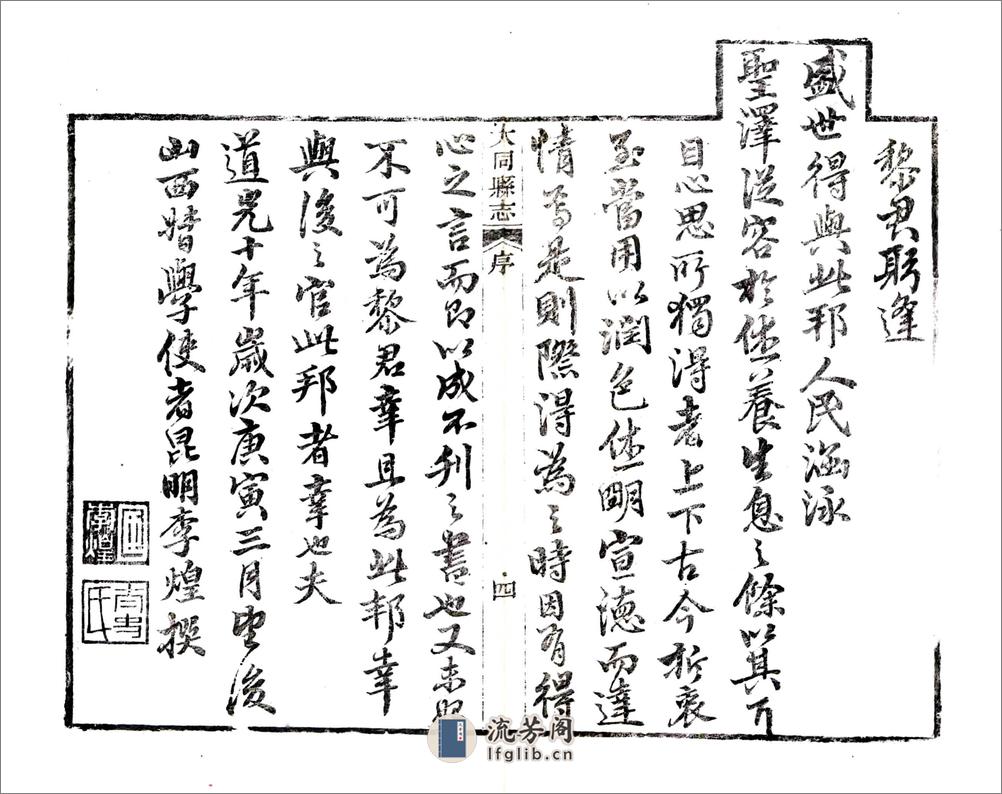 黎君躬逢
盛世得與此邦人民涵泳
聖澤從容於休養生息之餘以其耳
目心思所獨得者上下古今折衷
至當用以潤色休明宣德而達
情焉是則際得為之時因有得
大同縣志 序 四
心之言而即以成不刊之書也又未始
不可為黎君幸且為此邦幸
與後之官此邦者幸也夫
道光十年歲次庚寅三月望後
山西督學使者昆明李煌撰
流芳阁
lfglib.cn